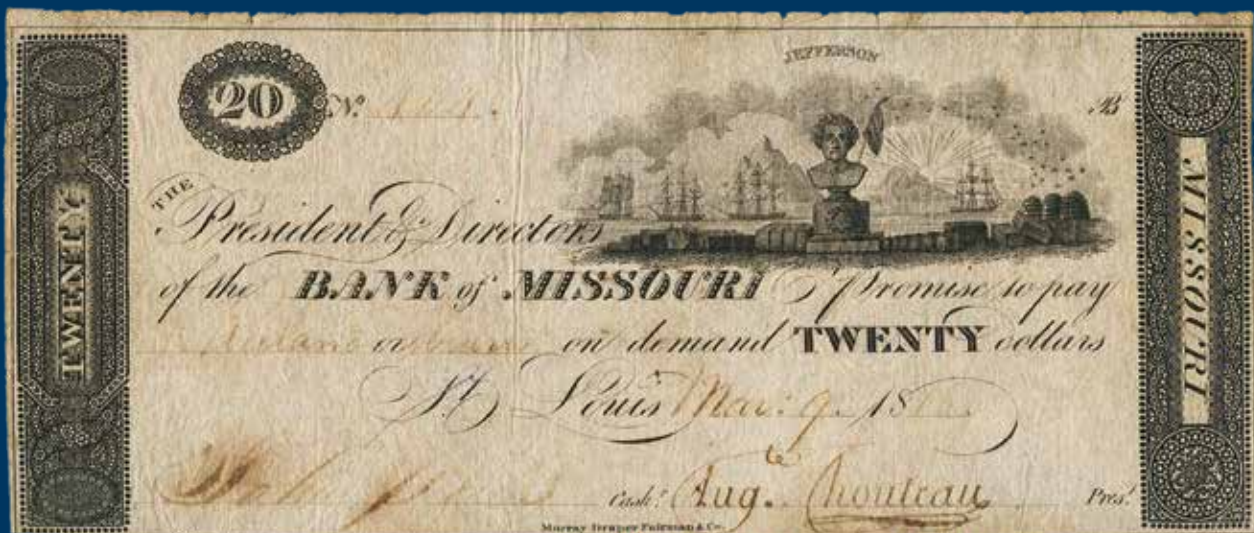 JEFFERSON
20 No. B
THE
President & Directors
of the BANK of MISSOURI Promise to pay
or on demand TWENTY dollars
St. Louis Mar: 9. 18
Cashr. Augte Chouteau Prest.
Murray Draper Fairman & Co.
TWENTY
MISSOURI